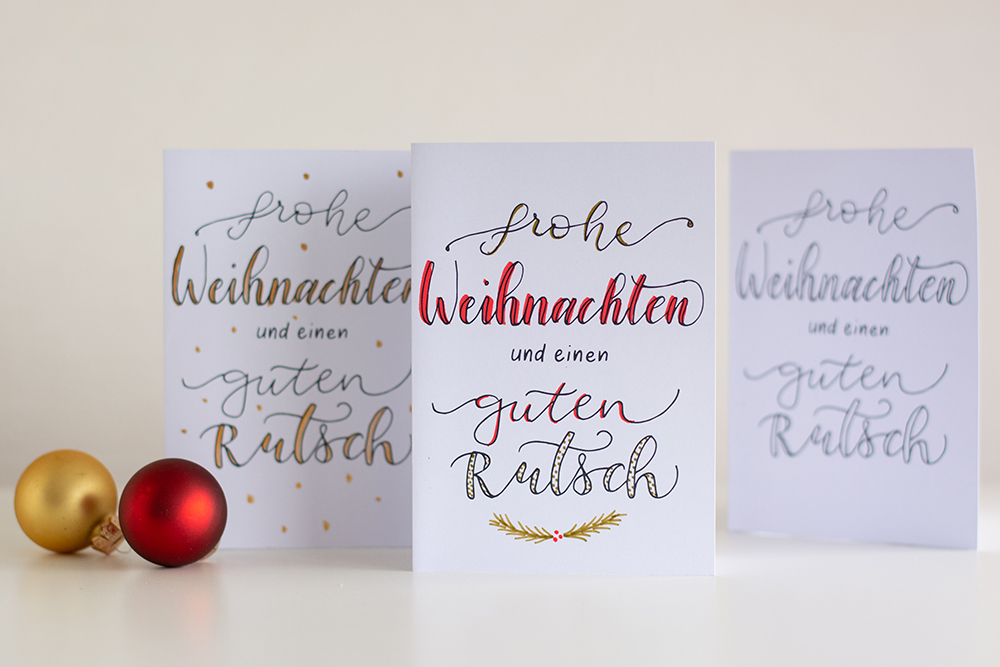 frohe
Weihnachten
und einen
guten
Rutsch
frohe
Weihnachten
und einen
guten
Rutsch
frohe
Weihnachten
und einen
guten
Rutsch